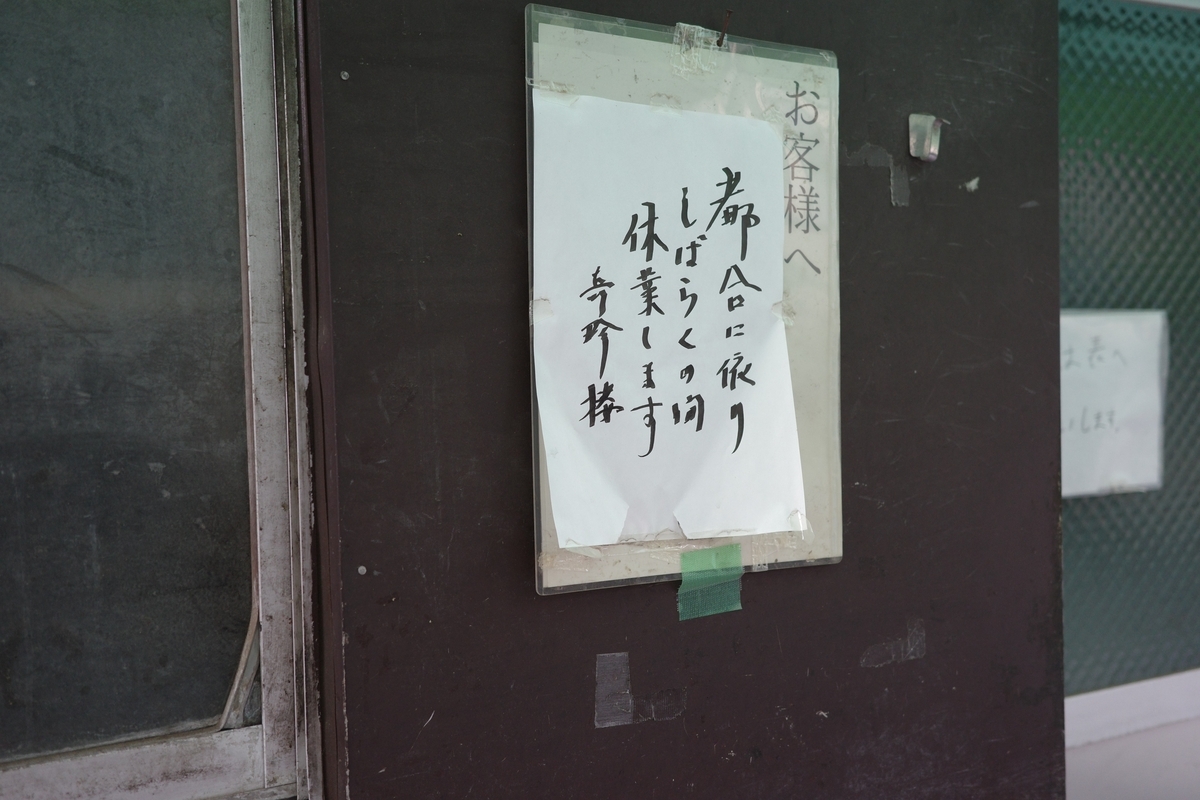 お客様へ
都合に依り
しばらくの間
休業します
奇珍楼
は表へ
します。